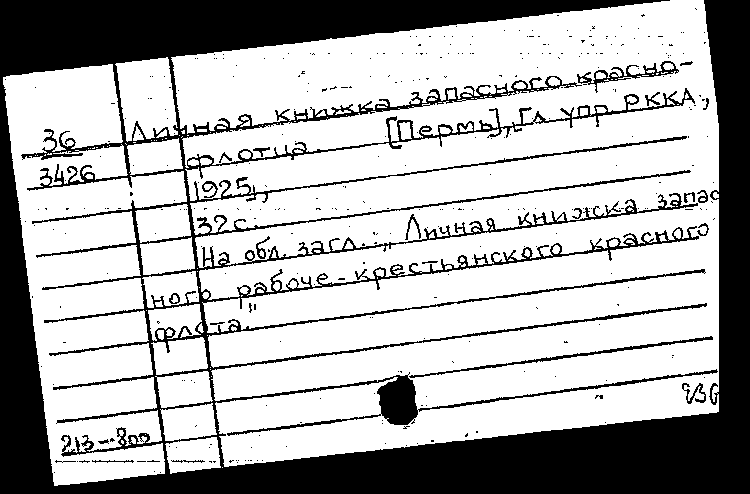 36 Личная книжка запасного красно-
3426 флотца. [Пермь], Гл упр РККА,
1925,
32 с.
На обл. загл.: „Личная книжка запас
ного рабоче-крестьянского красного
флота."
213-800